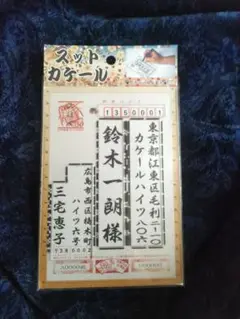 スット
カケール
1350001
東京都江東区毛利二-一〇
カケールハイツ二〇六
鈴木一朗様
広島市西区楠木町
ハイツ六号
三宅恵子
7330002